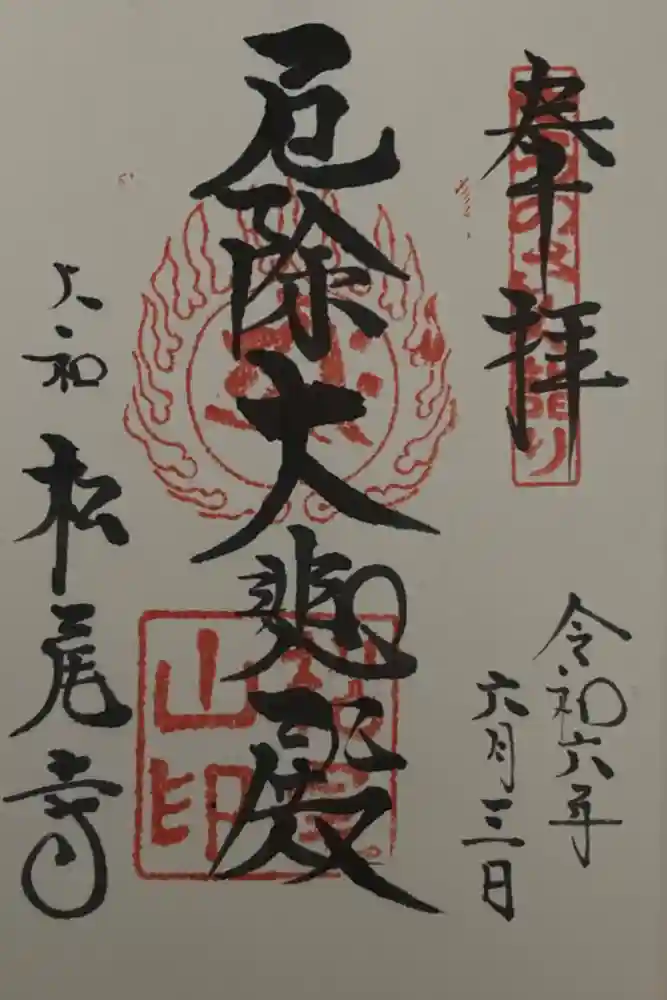 奉拝
令和六年
六月三日
厄除大悲殿
大和
松尾寺
山
印